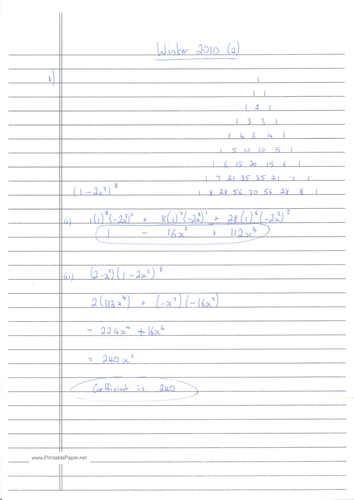 Winter 2010 (2)
1)
1
1 1
1 2 1
1 3 3 1
1 4 6 4 1
1 5 10 10 5 1
1 6 15 20 15 6 1
1 7 21 35 35 21 7 1
(1-2x²)⁸ 1 8 28 56 70 56 28 8 1
(i) 1(1)⁸(-2x²)⁰ + 8(1)⁷(-2x²)¹ + 28(1)⁶(-2x²)²
1 - 16x² + 112x⁴
(ii) (2-x²)(1-2x²)⁸
2(112x⁴) + (-x²)(-16x²)
= 224x⁴ + 16x⁴
= 240x²
Coefficient is 240
www.PrintablePaper.net